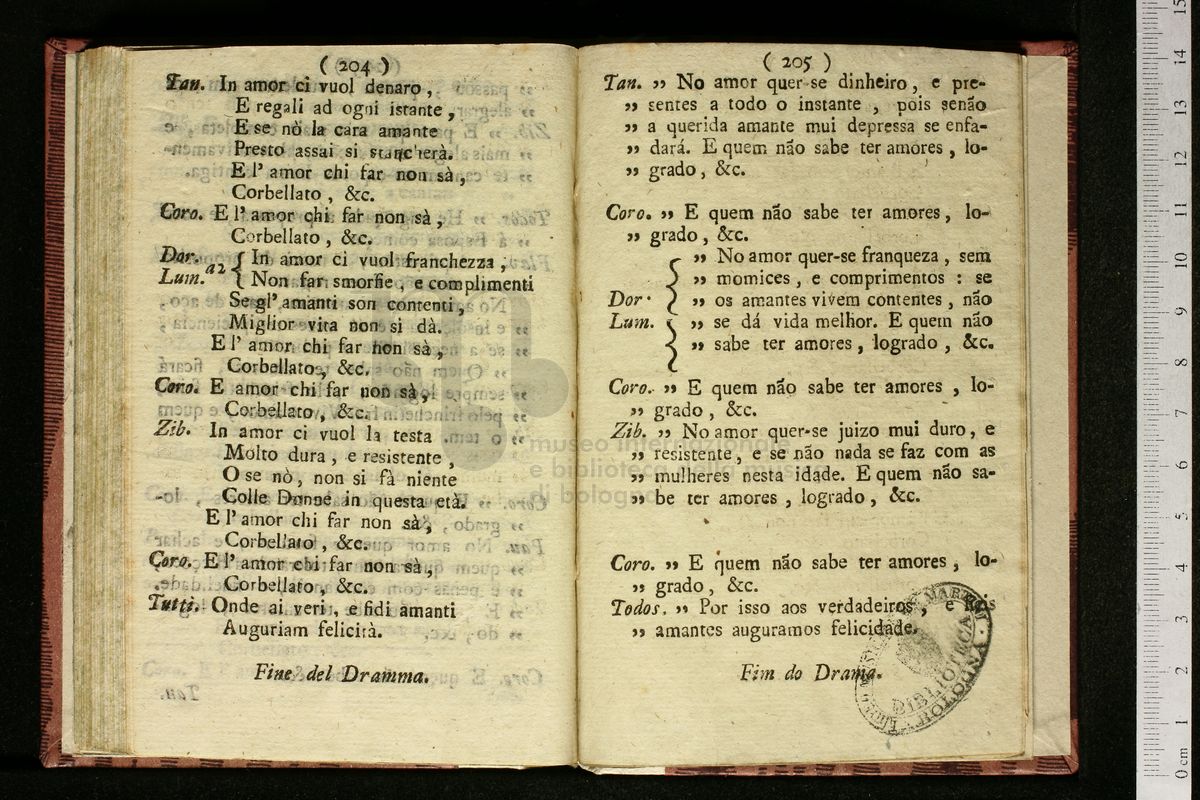 ( 204 )
Tan. In amor ci vuol denaro,
E regali ad ogni istante,
E se nò la cara amante
Presto assai si stancherà.
E l' amor chi far non sà,
Corbellato, &c.
Coro. E l' amor chi far non sà,
Corbellato, &c.
Dor. a2 { In amor ci vuol franchezza,
Lum. { Non far smorfie, e complimenti
Se gl' amanti son contenti,
Miglior vita non si dà.
E l' amor chi far non sà,
Corbellato, &c.
Coro. E amor chi far non sà,
Corbellato, &c.
Zib. In amor ci vuol la testa
Molto dura, e resistente,
O se nò, non si fà niente
Colle Donne in questa età.
E l' amor chi far non sà,
Corbellato, &c.
Coro. E l' amor chi far non sà,
Corbellato, &c.
Tutti. Onde ai veri, e fidi amanti
Auguriam felicità.
Fine del Dramma.
( 205 )
Tan. ” No amor quer-se dinheiro, e pre-
” sentes a todo o instante, pois senão
” a querida amante mui depressa se enfa-
” dará. E quem não sabe ter amores, lo-
” grado, &c.
Coro. ” E quem não sabe ter amores, lo-
” grado, &c.
” No amor quer-se franqueza, sem
” momices, e comprimentos : se
Dor. ” os amantes vivem contentes, não
Lum. ” se dá vida melhor. E quem não
” sabe ter amores, logrado, &c.
Coro. ” E quem não sabe ter amores, lo-
” grado, &c.
Zib. ” No amor quer-se juizo mui duro, e
” resistente, e se não nada se faz com as
” mulheres nesta idade. E quem não sa-
” be ter amores, logrado, &c.
Coro. ” E quem não sabe ter amores, lo-
” grado, &c.
Todos. ” Por isso aos verdadeiros, e fieis
” amantes auguramos felicidade.
Fim do Drama.
BIBLIOTECA
museo internazionale
e biblioteca della musica
di bologna
0 cm 1 2 3 4 5 6 7 8 9 10 11 12 13 14 15